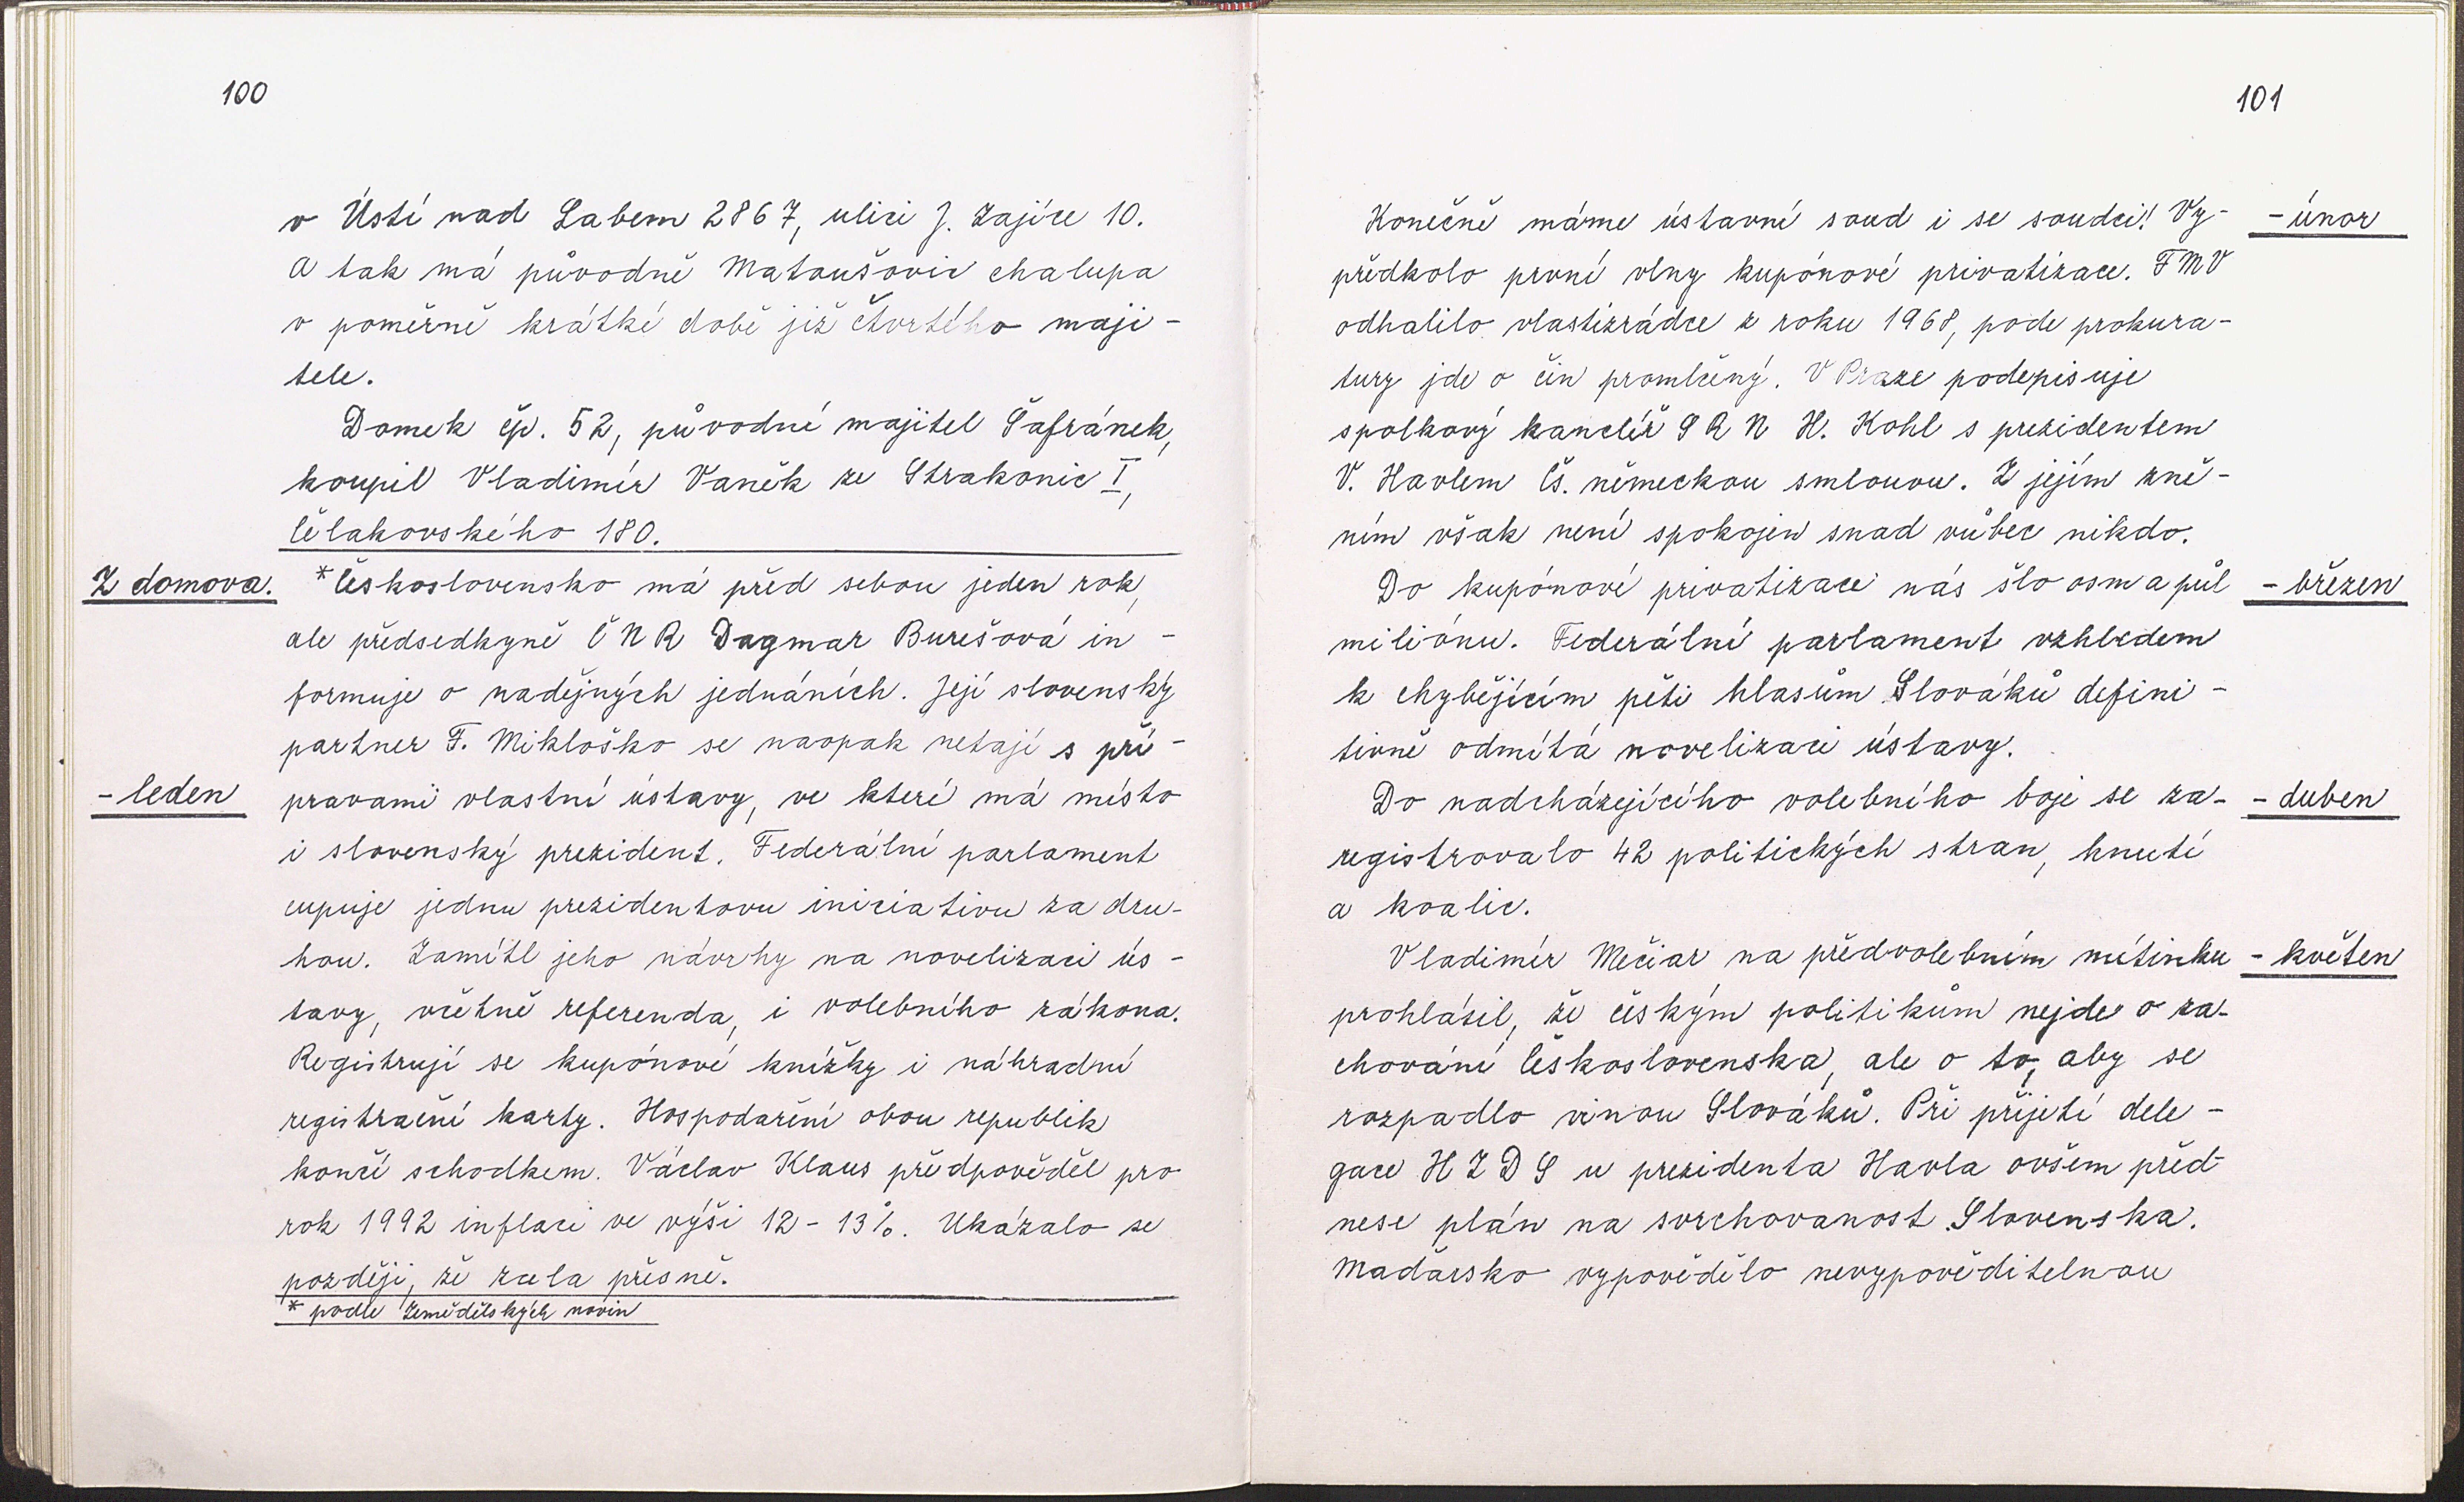 100
v Ústí nad Labem 2867, ulici J. Zajíce 10.
A tak má původně Matoušovic chalupa
v poměrně krátké době již čtvrtého maji-
tele.
Domek čp. 52, původní majitel Šafránek,
koupil Vladimír Vaněk ze Strakonic I,
Čelakovského 180.
Z domova. *Československo má před sebou jeden rok,
ale předsedkyně ČNR Dagmar Burešová in-
formuje o nadějných jednáních. Její slovenský
partner F. Mikloško se naopak netají s pří-
- leden pravami vlastní ústavy, ve které má místo
i slovenský prezident. Federální parlament
cupuje jednu prezidentovu iniciativu za dru-
hou. Zamítl jeho návrhy na novelizaci ús-
tavy, včetně referenda, i volebního zákona.
Registrují se kupónové knížky i náhradní
registrační karty. Hospodaření obou republik
končí schodkem. Václav Klaus předpověděl pro
rok 1992 inflaci ve výši 12 - 13%. Ukázalo se
později, že zcela přesně.
* podle Zemědělských novin
101
Konečně máme ústavní soud i se soudci! Vy- - únor
předkolo první vlny kupónové privatizace. FMV
odhalilo vlastizrádce z roku 1968, pode prokura-
tury jde o čin promlčený. V Praze podepisuje
spolkový kancléř SRN H. Kohl s prezidentem
V. Havlem čs. německou smlouvu. Z jejím zně-
ním však není spokojen snad vůbec nikdo.
Do kupónové privatizace nás šlo osm a půl - březen
miliónu. Federální parlament vzhledem
k chybějícím pěti hlasům Slováků defini-
tivně odmítá novelizaci ústavy.
Do nadcházejícího volebního boje se za- - duben
registrovalo 42 politických stran, hnutí
a koalic.
Vladimír Mečiar na předvolebním mítinku - květen
prohlásil, že českým politikům nejde o za-
chování Československa, ale o to, aby se
rozpadlo vinou Slováků. Při přijetí dele-
gace HZDS u prezidenta Havla ovšem před-
nese plán na svrchovanost Slovenska.
Maďarsko vypovědělo nevypověditelnou